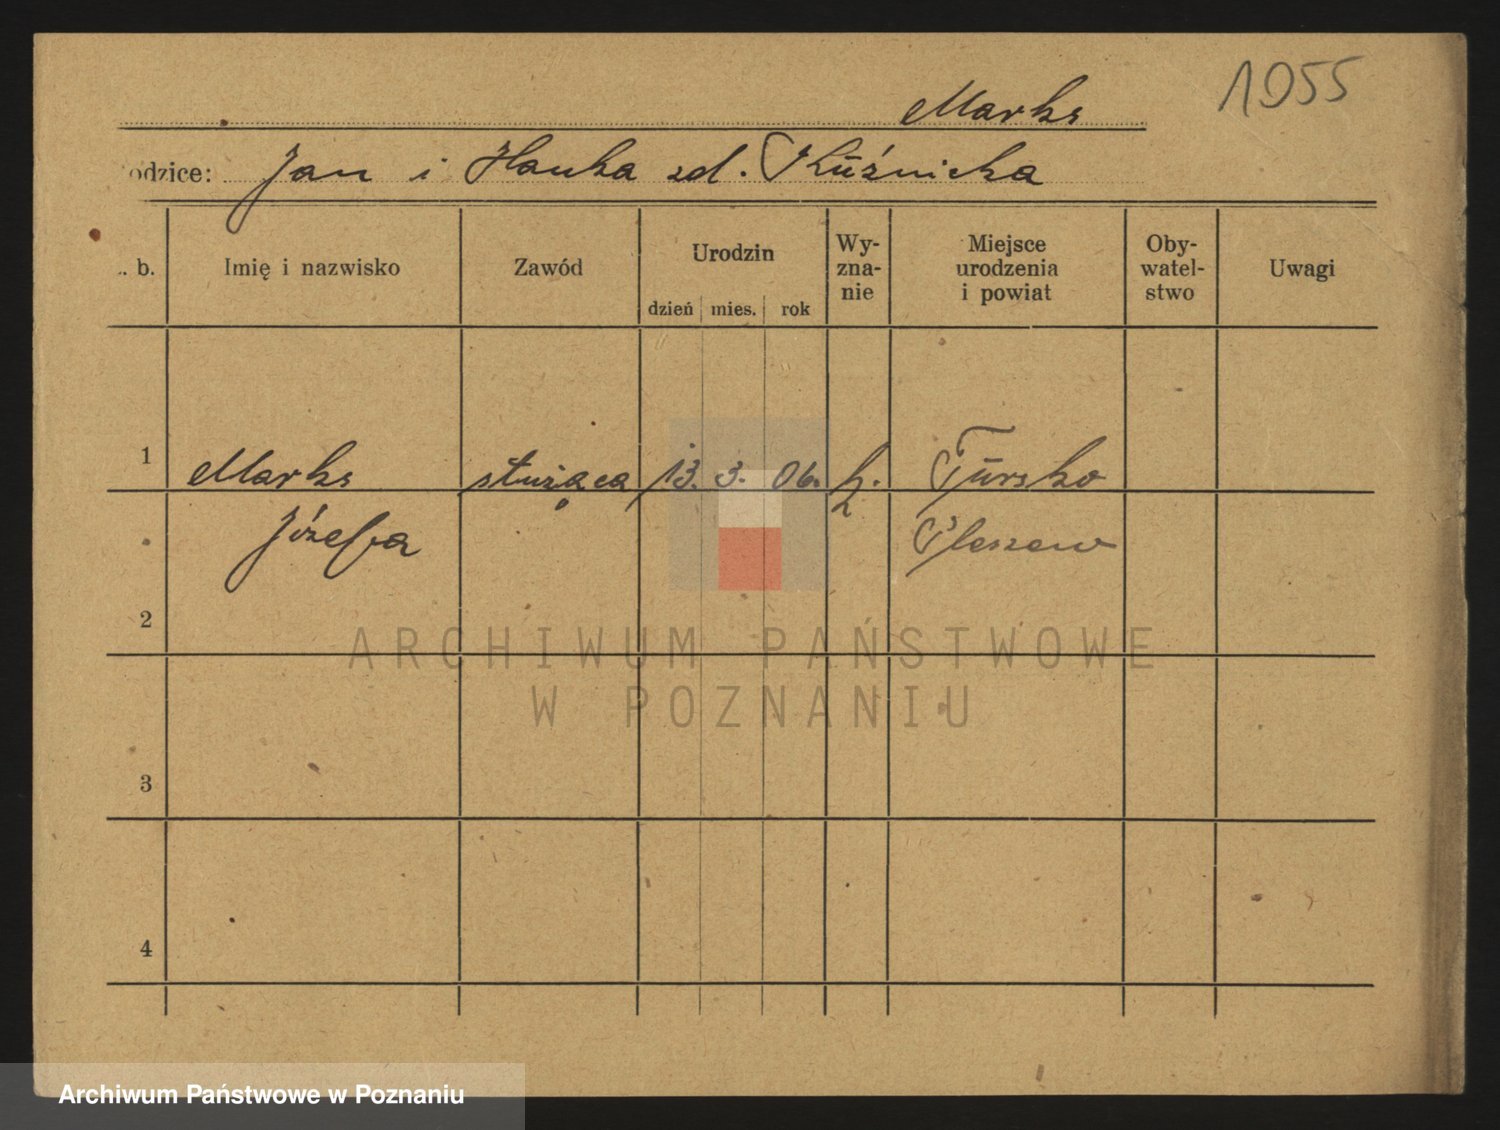 1055
Marks
odzice: Jan i Hanka zd. Kuźnicka
. b.
Imię i nazwisko
Zawód
Urodzin
dzień mies. rok
Wy-
zna-
nie
Miejsce
urodzenia
i powiat
Oby-
watel-
stwo
Uwagi
1 Marks służąca 13. 3. 06. k. Tursko
Józefa Pleszew
2
3
4
ARCHIWUM PAŃSTWOWE
W POZNANIU
Archiwum Państwowe w Poznaniu